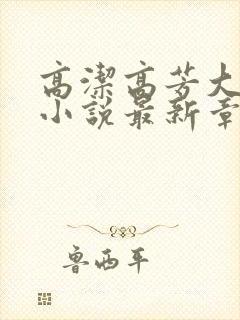 高潔高芳大
小說最新章
魯西平